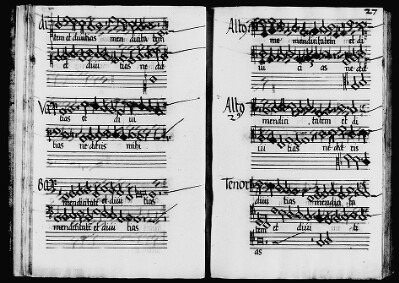 tem et divitias mendicita tem
et divi tias ne det
tias et di vi
tias ne deris mihi
Bax
mendicitatē et divi tias
mendicitatē et divi tias
27
Alto
me mendicitatem et di
vi ci as ne det
Alto
2º
mendici tatem et di
vi tias ne det ris
Tenor
divi tias mendici ta
tem et divi ti
as